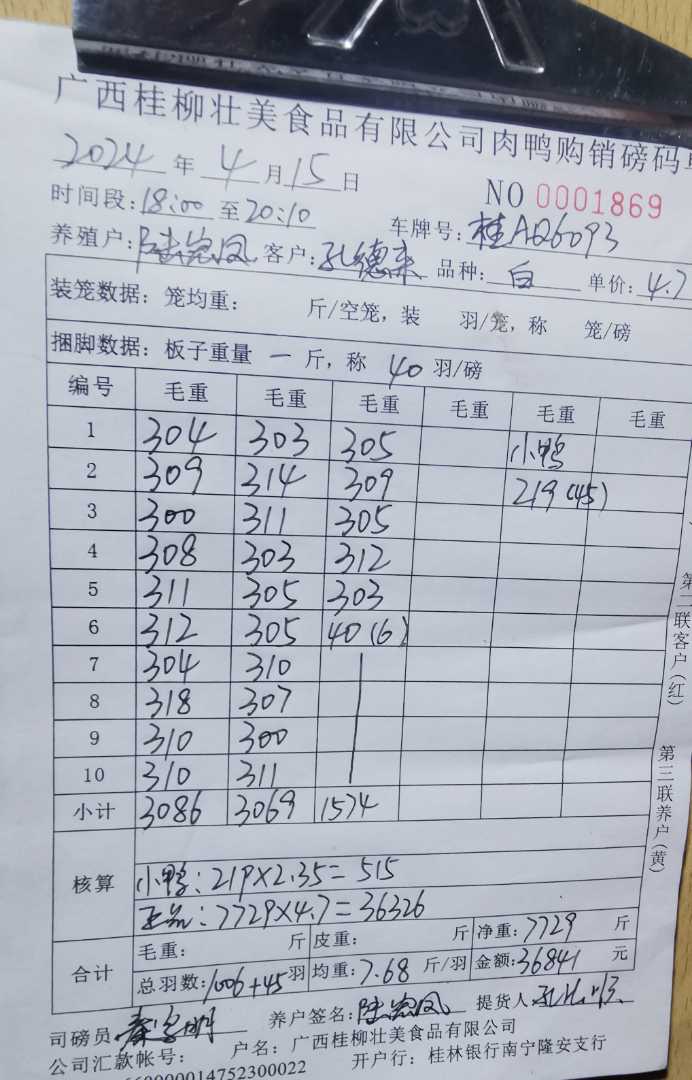 广西桂柳壮美食品有限公司肉鸭购销磅码单
2024 年 4 月 15 日
NO 0001869
时间段: 18:00 至 20:10 车牌号: 桂AQ6093
养殖户: 客户: 孔德来 品种: 白 单价: 4.7
装笼数据: 笼均重: 斤/空笼, 装 羽/笼, 称 笼/磅
捆脚数据: 板子重量 一 斤, 称 40 羽/磅
编号 毛重 毛重 毛重 毛重 毛重 毛重
1 304 303 305 小鸭
2 309 314 309 219 (45)
3 300 311 305
4 308 303 312
5 311 305 303
6 312 305 40 (6)
7 304 310
8 318 307
9 310 300
10 310 311
小计 3086 3069 1574
核算 小鸭: 219×2.35= 515
正品: 7729×4.7=36326
合计 毛重: 斤 皮重: 斤 净重: 7729 斤
总羽数: 1006+45 羽 均重: 7.68 斤/羽 金额: 36841 元
司磅员 养户签名: 提货人
公司汇款帐号: 户名: 广西桂柳壮美食品有限公司
660000014752300022 开户行: 桂林银行南宁隆安支行
第二联客户(红)
第三联养户(黄)